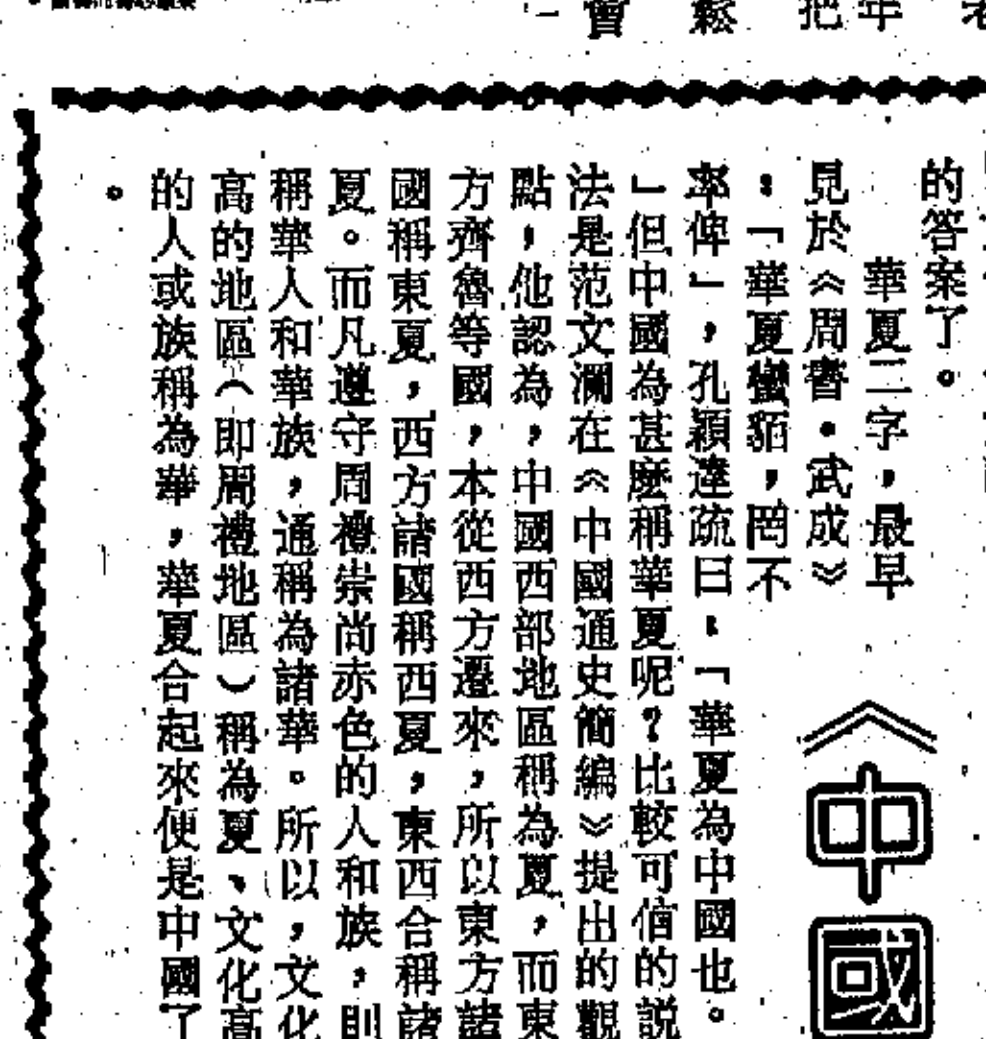 老
年
把
鬆
會
的答案了。
華夏二字,最早
見於《周書·武成》
:「華夏蠻貊,罔不
率俾」,孔穎達疏曰:「華夏為中國也。
」但中國為甚麼稱華夏呢?比較可信的說
法是范文瀾在《中國通史簡編》提出的觀
點,他認為,中國西部地區稱為夏,而東
方齊魯等國,本從西方遷來,所以東方諸
國稱東夏,西方諸國稱西夏,東西合稱諸
夏。而凡遵守周禮崇尚赤色的人和族,則
稱華人和華族,通稱為諸華。所以,文化
高的地區(即周禮地區)稱為夏、文化高
的人或族稱為華,華夏合起來便是中國了
。
《中國